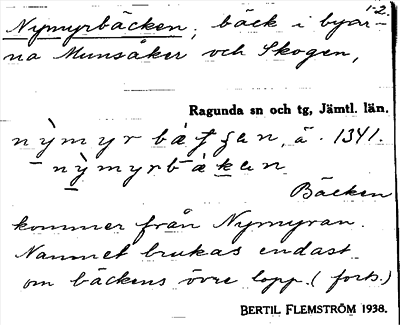 1-2.
Nymyrbäcken, bäck i byar-
na Munsåker och Skogen,
Ragunda sn och tg, Jämtl. län.
nỳmyrbäʃʃan, ä. 1341.
nỳmyrbäkan
Bäcken
kommer från Nymyran.
Namnet brukas endast
om bäckens övre lopp. (forts.)
BERTIL FLEMSTRÖM 1938.